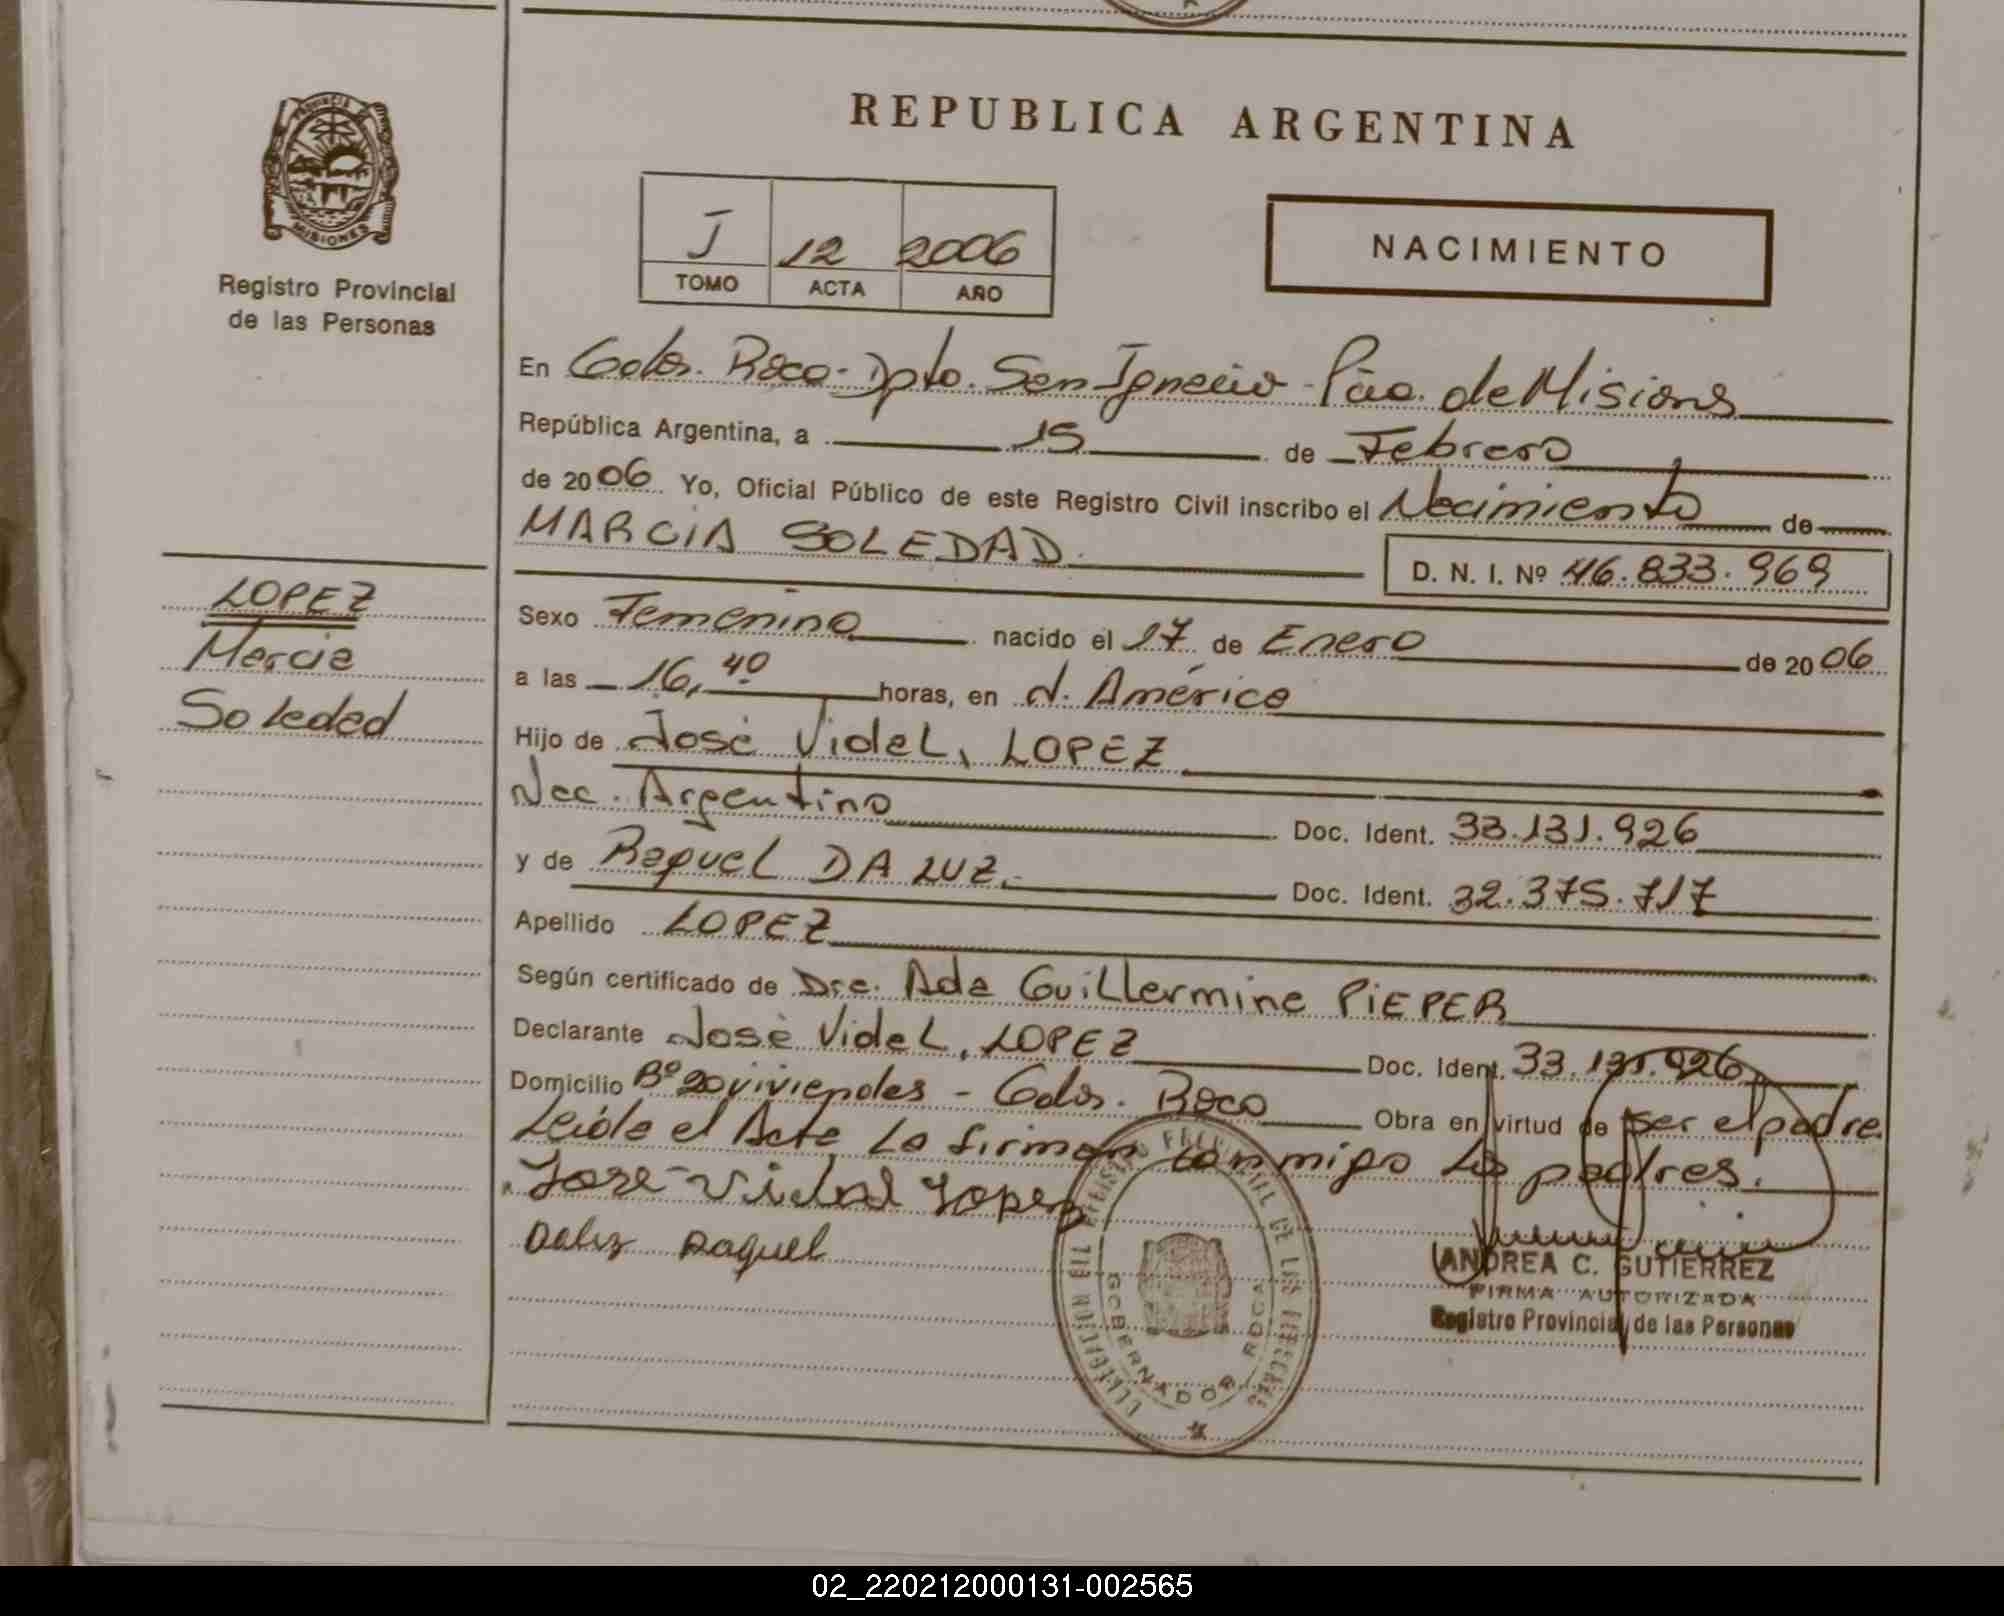 REPUBLICA ARGENTINA
PROVINCIA
MISIONES
Registro Provincial
de las Personas
J 12 2006
TOMO ACTA AÑO
NACIMIENTO
En Gdor. Roca - Dpto. San Ignacio - Pcia. de Misiones
República Argentina, a 15 de Febrero
de 2006 Yo, Oficial Público de este Registro Civil inscribo el Nacimiento de
MARCIA SOLEDAD.
D. N. I. Nº 46.833.969
LOPEZ
Marcia
Soledad
Sexo Femenino nacido el 17 de Enero de 2006
a las 16,40 horas, en J. América
Hijo de José Vidal, LOPEZ
Nac. Argentino Doc. Ident. 33.131.926
y de Raquel DA LUZ. Doc. Ident. 32.375.717
Apellido LOPEZ
Según certificado de Dra. Ada Guillermina PIEPER
Declarante José Vidal, LOPEZ Doc. Ident. 33.131.926
Domicilio Bº 20 viviendas - Gdor. Roca Obra en virtud de ser el padre
Leída el Acta La firman conmigo los padres.
José Vidal Lopez
Daluz Raquel
GOBERNADOR ROCA
ANDREA C. GUTIERREZ
FIRMA AUTORIZADA
Registro Provincial de las Personas
02_220212000131-002565